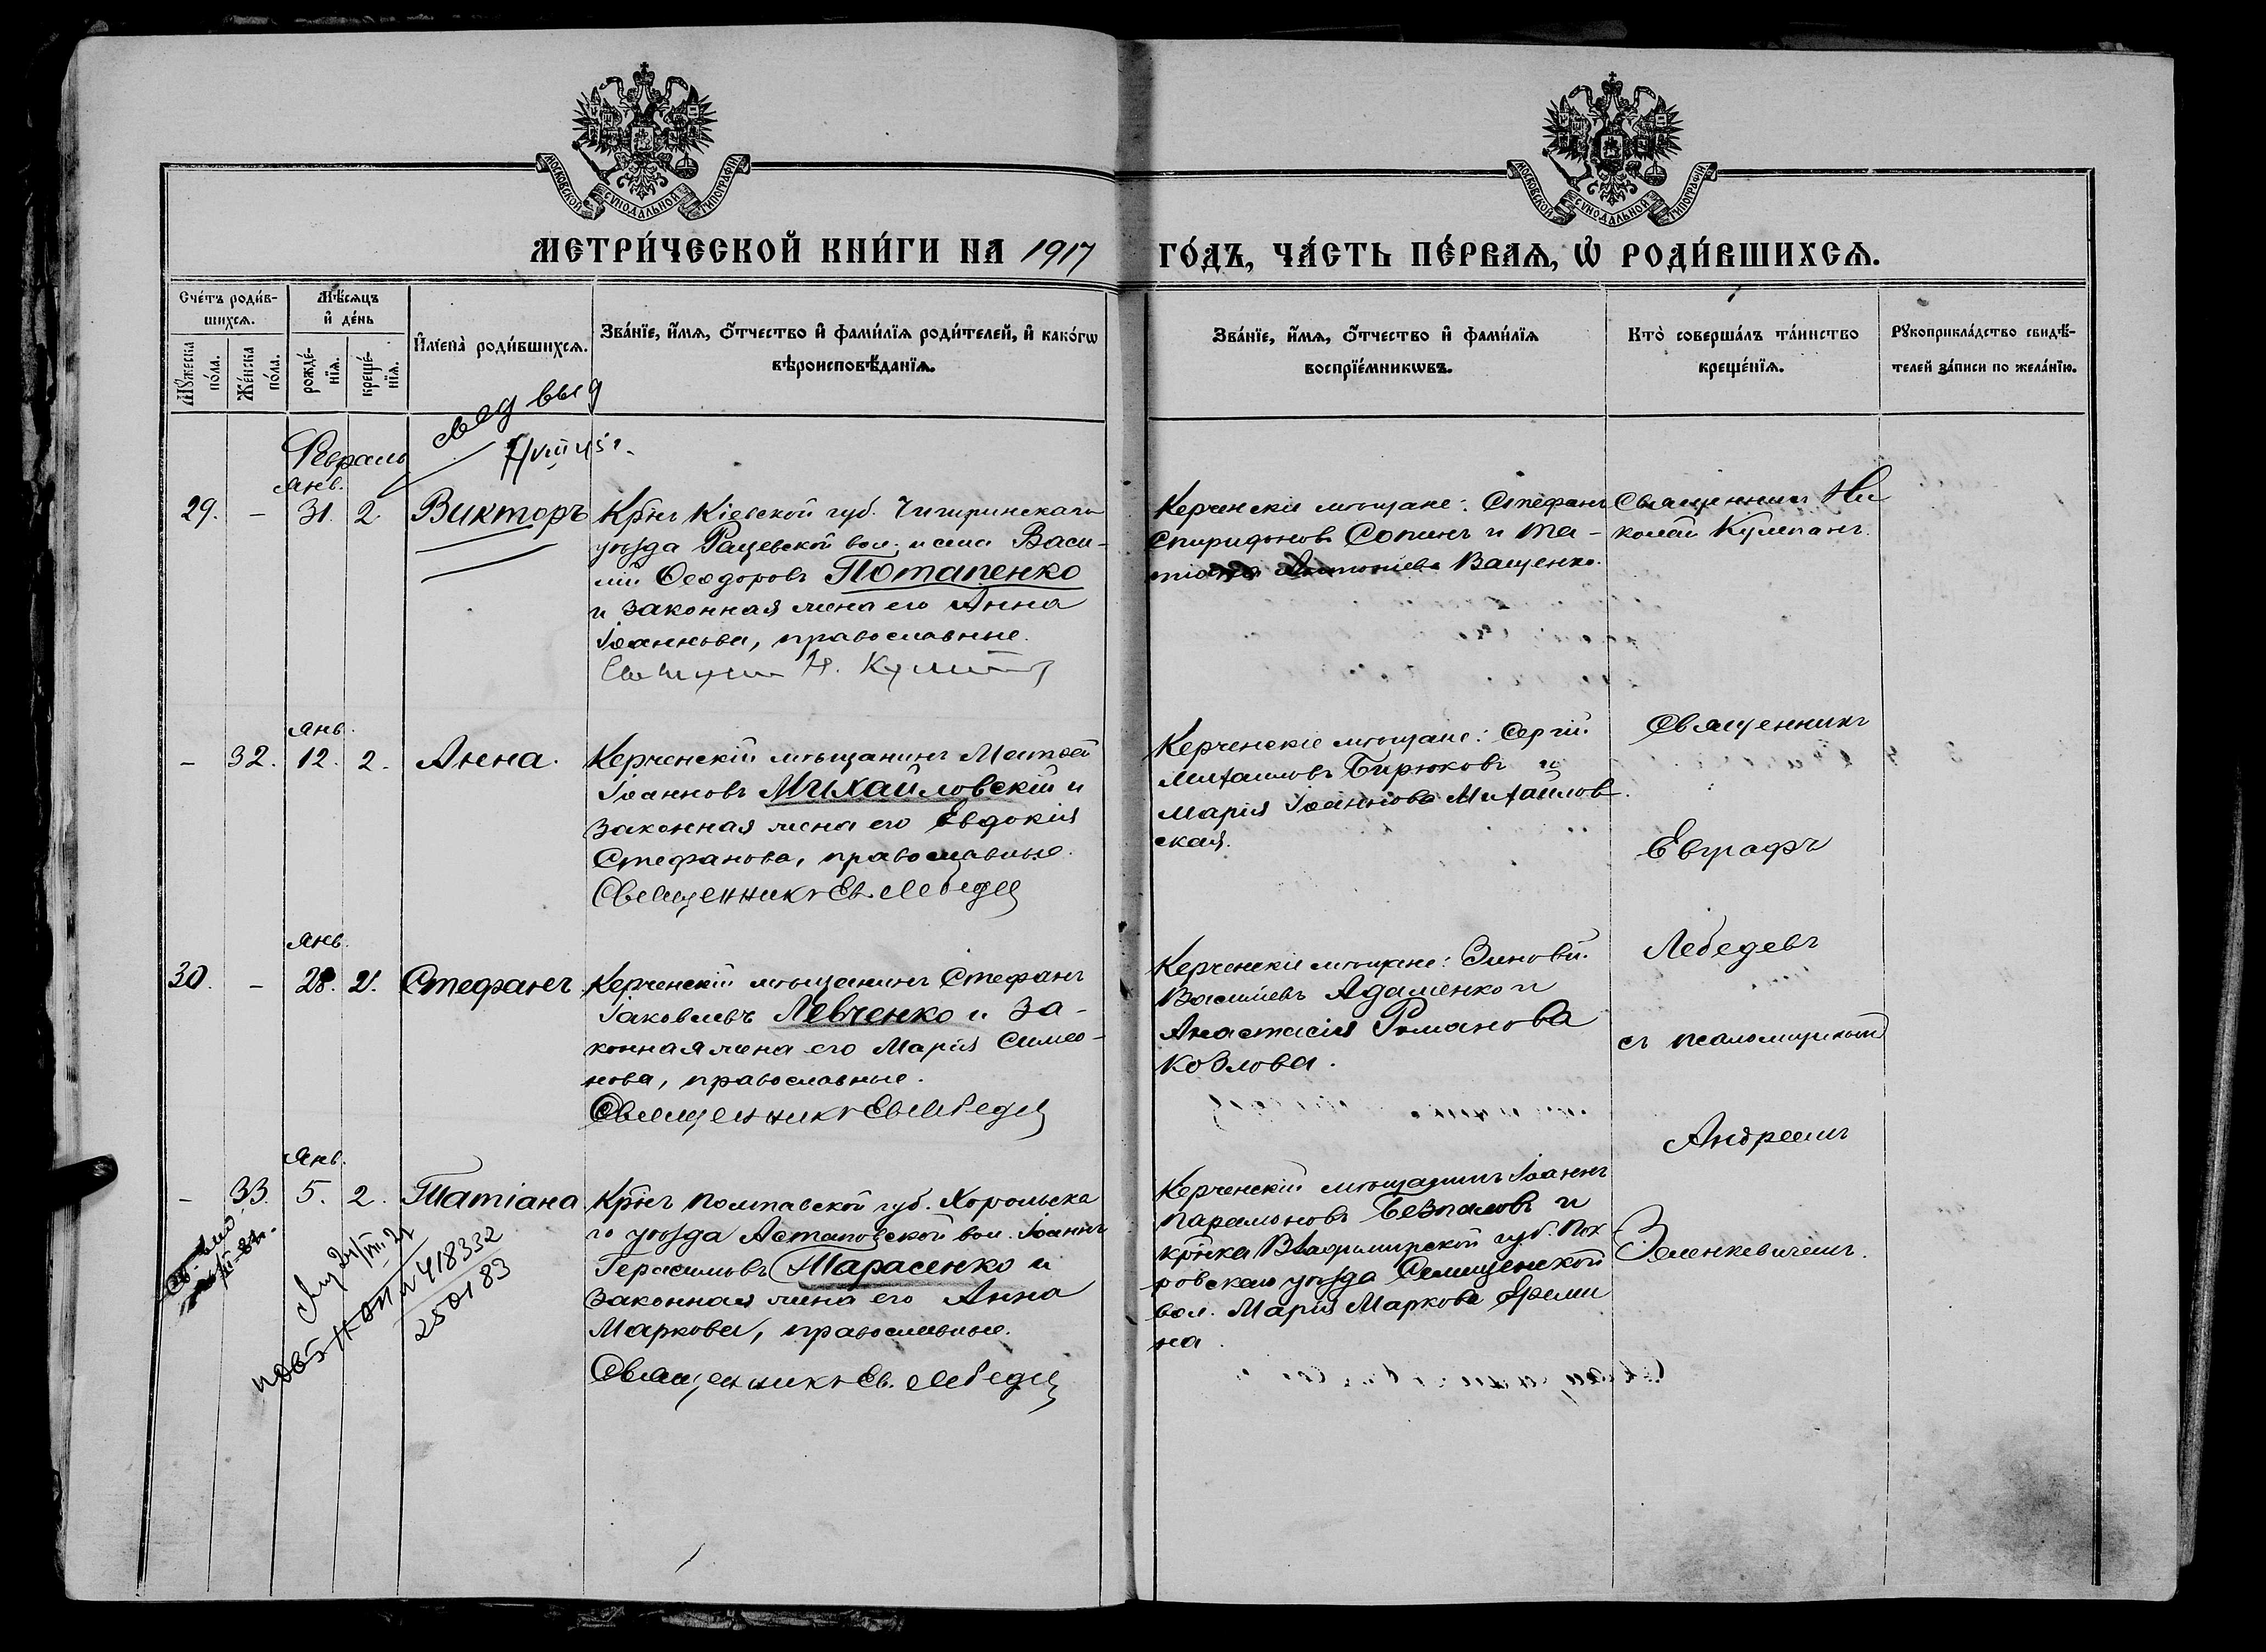 МОСКОВСКОЙ СѴНОДАЛЬНОЙ ТИПОГРАФІИ
МОСКОВСКОЙ СѴНОДАЛЬНОЙ ТИПОГРАФІИ
МЕТРИ́ЧЕСКОЙ КНИ́ГИ НА 1917 ГО́ДЪ, ЧА́СТЬ ПЕ́РВАѦ, Ѡ҆ РОДИ́ВШИХСѦ.
Сче́тъ роди́в-
шихсѧ.
Мѹ́жеска
по́ла.
Же́нска
по́ла.
Мѣ́сѧцъ
и҆ де́нь
рожде́-
нїѧ.
креще́-
нїѧ.
И҆мена̀ роди́вшихсѧ.
Зва́нїе, и҆́мѧ, ѻ҆́тчество и҆ фами́лїѧ роди́телей, и҆ како́гѡ
вѣроисповѣ́данїѧ.
Зва́нїе, и҆́мѧ, ѻ҆́тчество и҆ фами́лїѧ
воспрїе́мникѡвъ.
Кто̀ соверша́лъ та́инство
креще́нїѧ.
Рѹкоприкла́дство свидѣ́-
телей за́писи по жела́нїю.
Февраль
Янв.
29. - 31. 2. Викторъ
Крнъ Кіевской губ. Чигиринскаго
уѣзда Рацевской вол. и села Васи-
лій Ѳеодоровъ Потапенко
и законная жена его Анна
Іоаннова, православные.
Керченскіе мѣщане: Стефанъ
Спиридоновъ Сопинъ и Та-
тіана Ващенко.
Священникъ Ни
колай Кумпанъ.
Янв.
- 32. 12. 2. Анна.
Керченскій мѣщанинъ Матѳей
Іоанновъ Михайловскій и
законная жена его Евдокія
Стефанова, православные.
Священникъ Ев. Лебедев
Керченскіе мѣщане: Сергій
Михаиловъ Бирюковъ и
Марія Іоаннова Михайлов
ская.
Священникъ
Евграфъ
Янв.
30. - 28. 2. Стефанъ
Керченскій мѣщанинъ Стефанъ
Іаковлевъ Левченко и за-
конная жена его Марія Симео-
нова, православные.
Священникъ Ев Лебедев
Керченскіе мѣщане: Зиновій
Василіевъ Адаменко и
Анастасія Романова
Козлова.
Лебедевъ
съ псаломщикомъ
Андреемъ
Зеленкевичемъ.
Янв.
- 33. 5. 2. Татіана
Крнъ Полтавской губ. Хорольска
го уѣзда Астаповской вол. Іоаннъ
Герасимовъ Тарасенко и
законная жена его Анна
Маркова, православные.
Священникъ Ев. Лебедев
Керченскій мѣщанинъ Іоаннъ
Парамоновъ Безпаловъ и
крнка Владимирской губ. Пок
ровскаго уѣзда
вол. Марія Маркова Ереми
на.
418332
250183